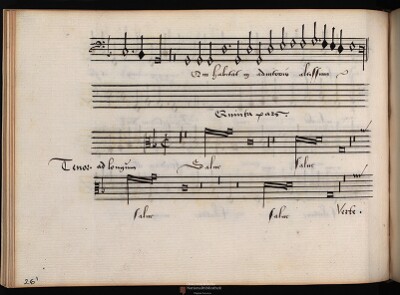 Qui habitat in adiutorio altissimi
Quinta pars.
Tenor. ad longum Salue Salue
Salue Salue Verte.
26v